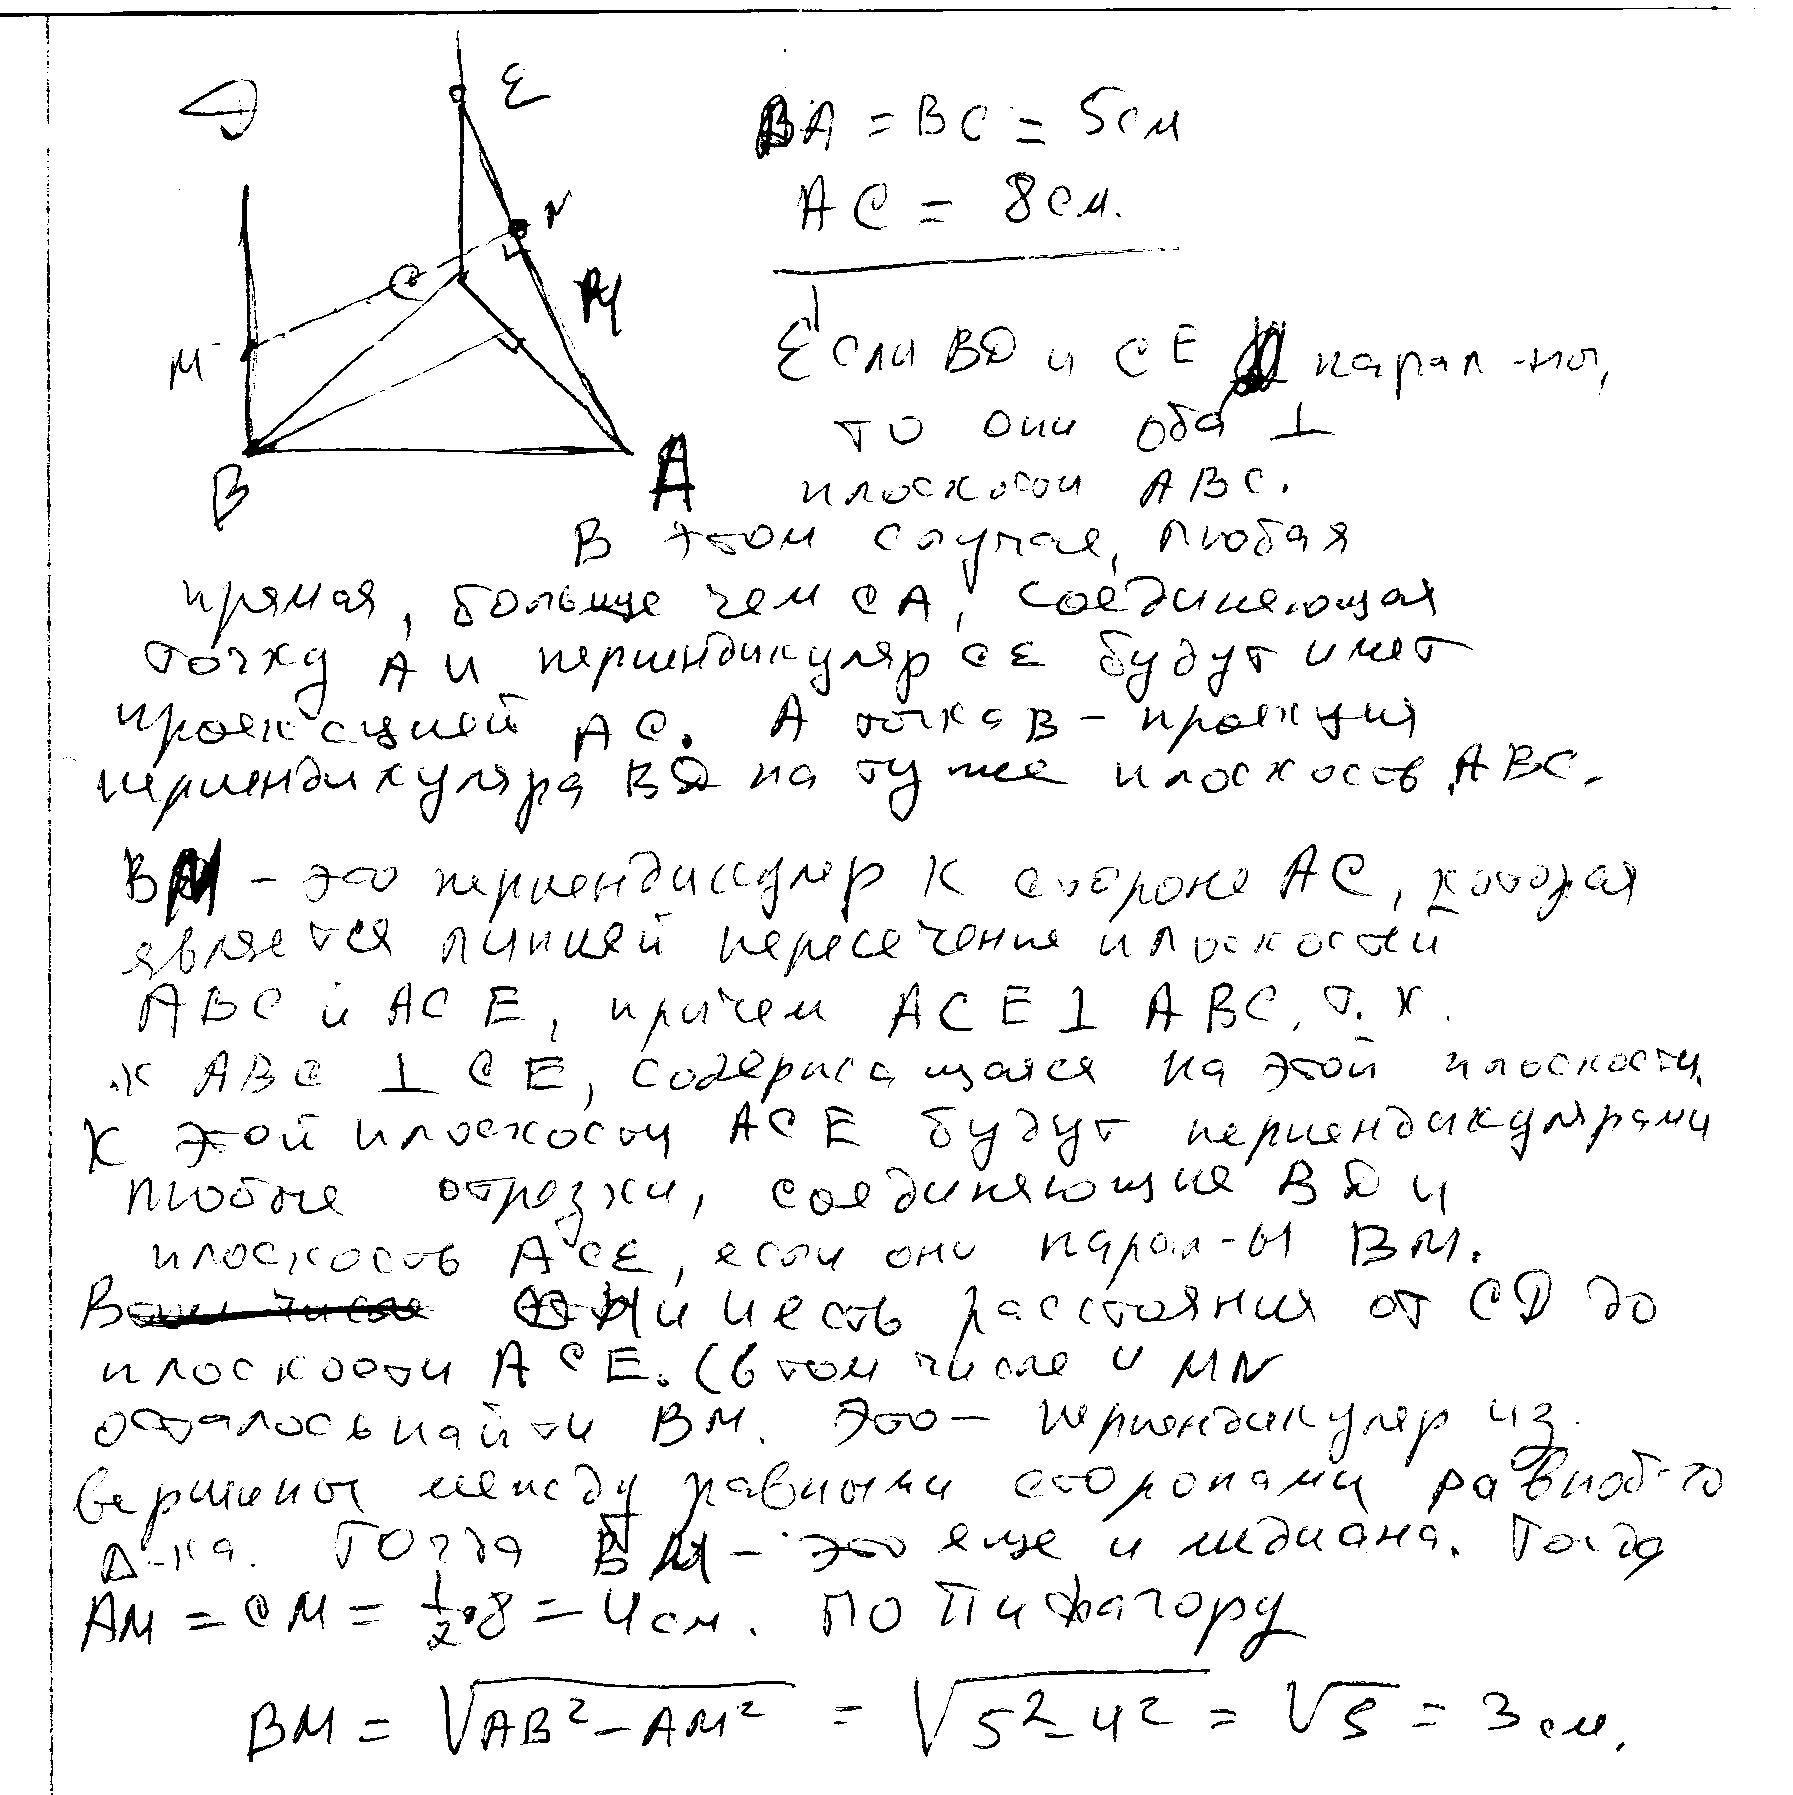 Е
N
C
M
M
B
A
BA = BC = 5см
AC = 8см.
Если BD и CE парал-ны,
то они оба ⊥
плоскости ABC.
В этом случае, любая
прямая, больше чем CA, соединяющая
точку A и перпендикуляр CE будут имет
проекцией AC. А точка B - проекция
перпендикуляра BD на ту же плоскость ABC.
BM - это перпендикуляр к стороне AC, которая
является линией пересечения плоскостей
ABC и ACE, причем ACE ⊥ ABC, т.к.
к ABC ⊥ CE, содержащаяся на этой плоскости.
К этой плоскости ACE будут перпендикулярами
любые отрезки, соединяющие BD и
плоскость ACE, если они парал-ы BM.
и есть расстояния от CD до
плоскости ACE. (в том числе и MN
осталось найти BM. Это - перпендикуляр из
вершины между равными сторонами равноб-го
Δ-ка. Тогда BM - это еще и медиана. Тогда
AM = CM = 1/2·8 = 4см. По Пифагору
BM = √AB² - AM² = √5² - 4² = √9 = 3см.